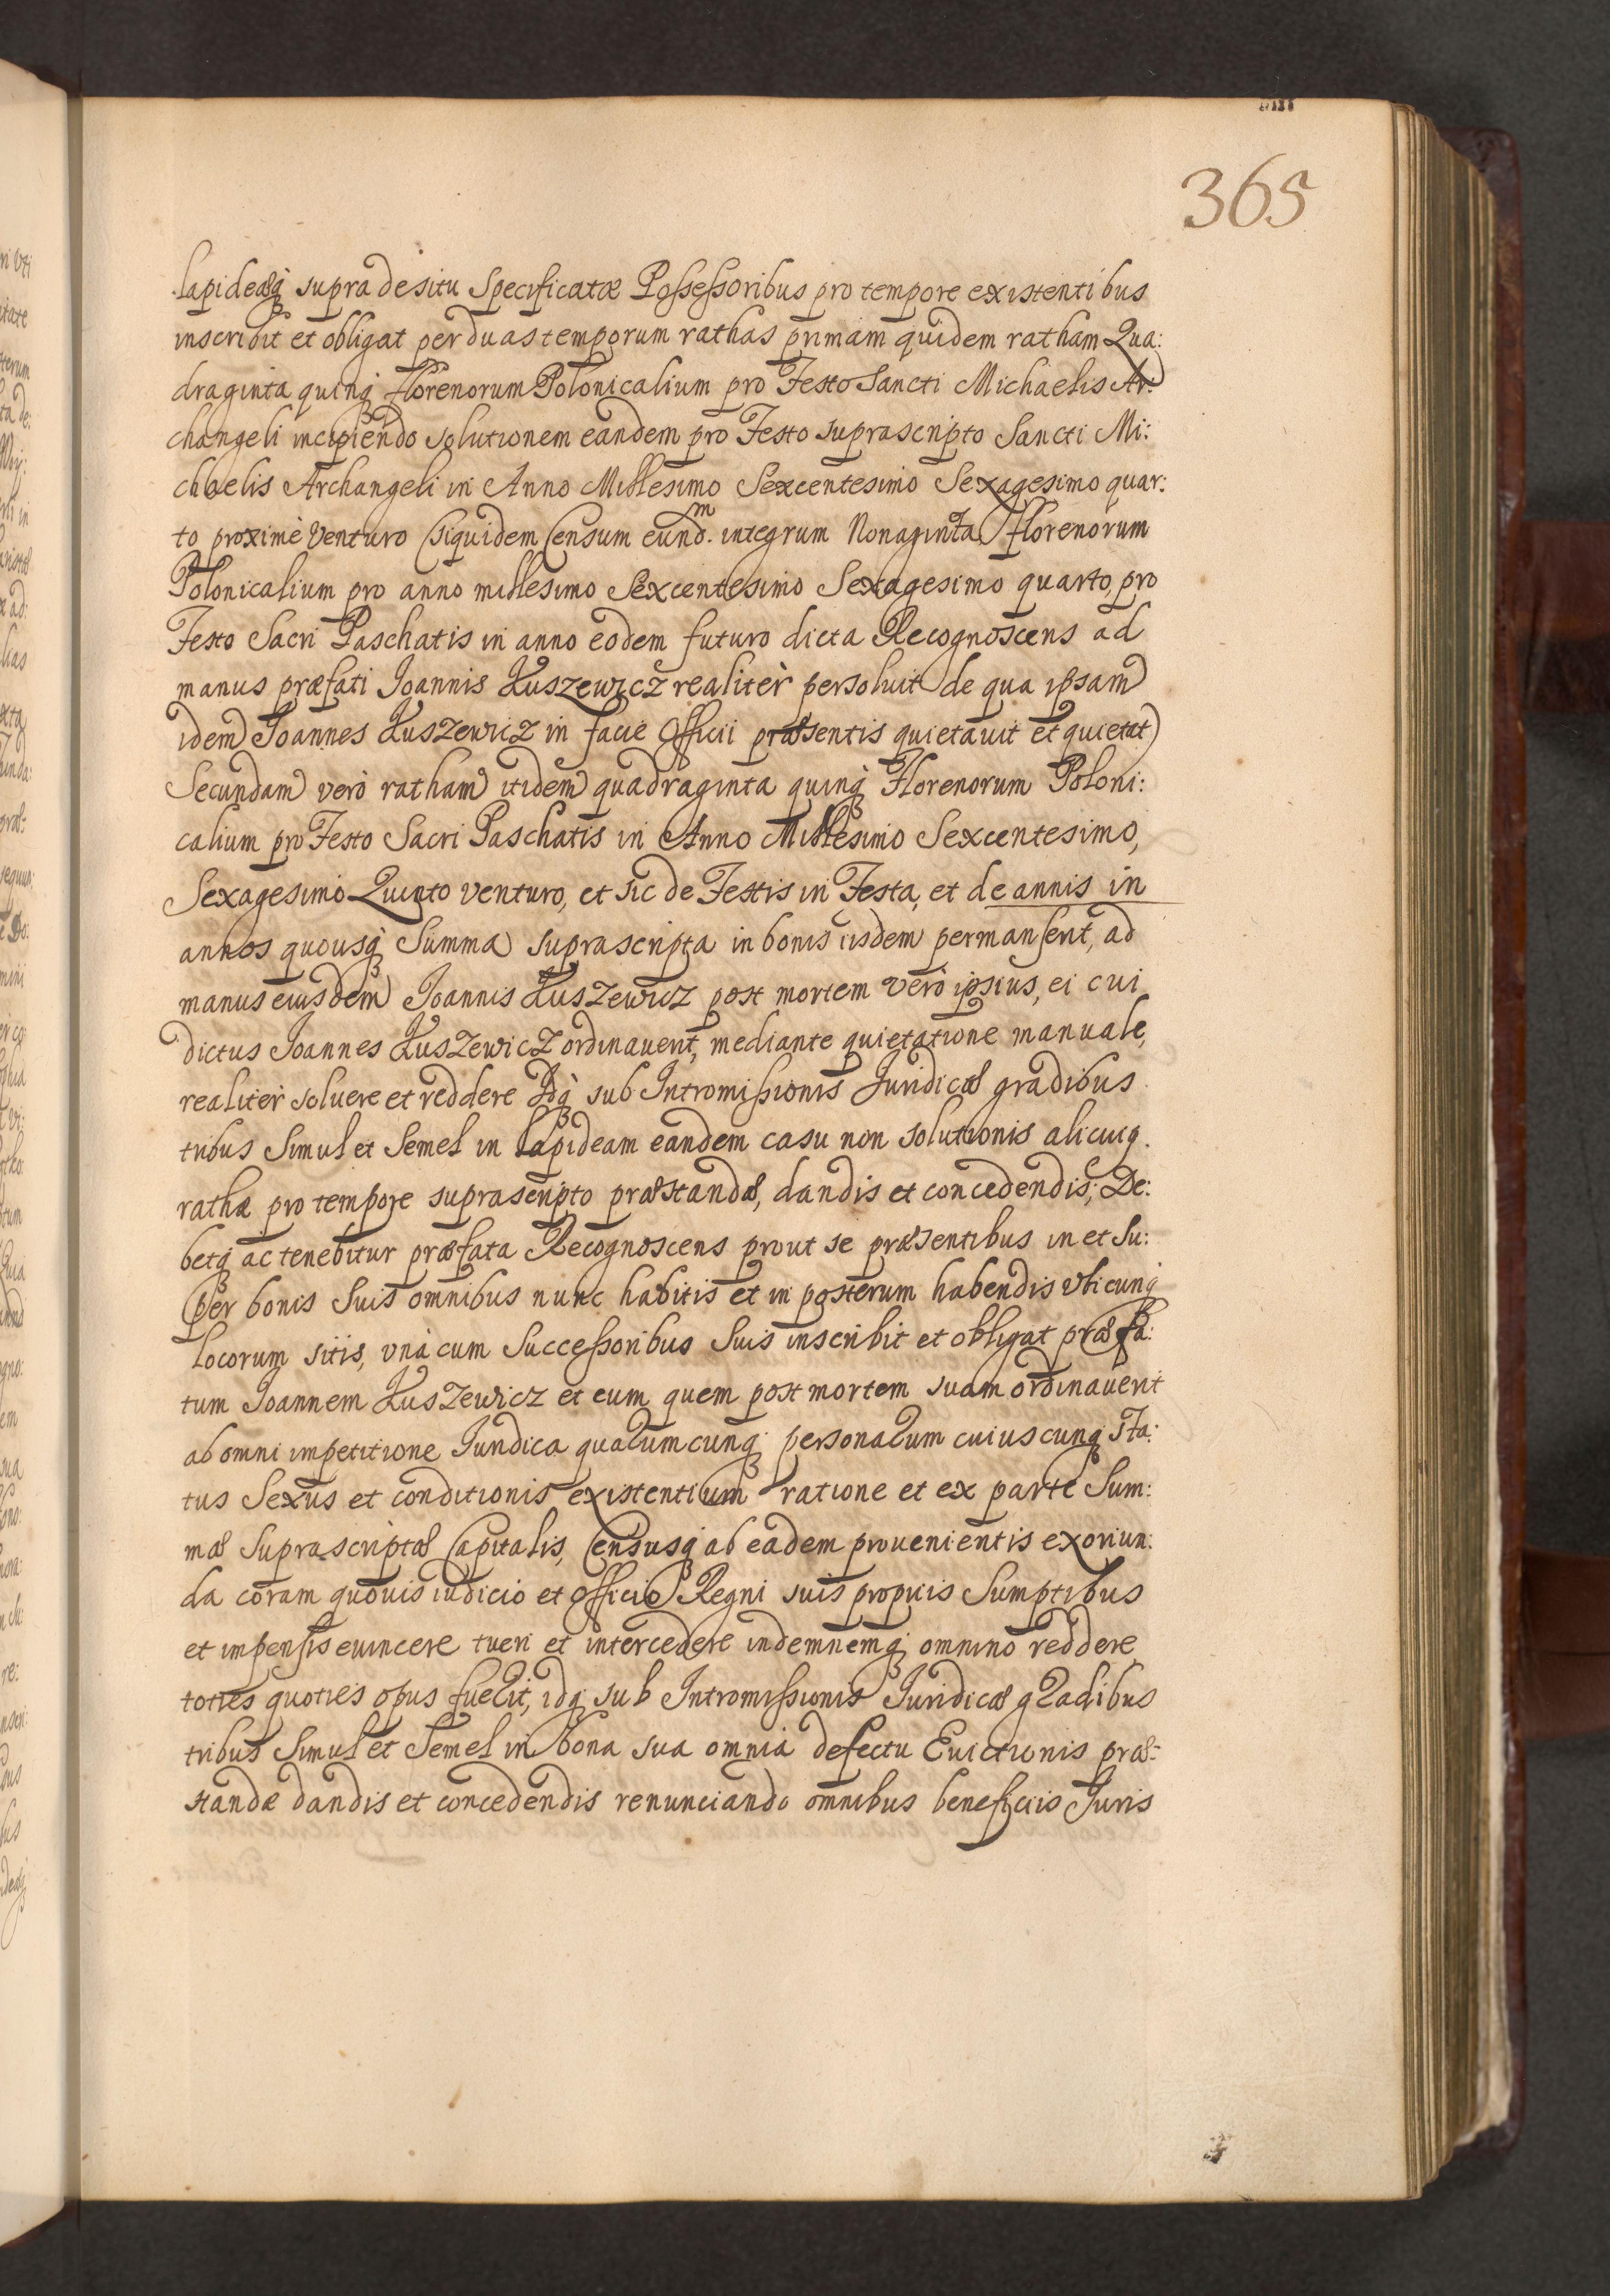 365
lapideæq́ supra de situ specificatæ Possessoribus pro tempore existentibus
inscribit et obligat per duas temporum rathas primam quidem ratham Qua:
draginta quinq́ florenorum Polonicalium pro Festo Sancti Michaelis Ar:
changeli incipiendo solutionem eandem pro Festo suprascripto Sancti Mi:
chaelis Archangeli in Anno Millesimo Sexcentesimo Sexagesimo quar:
to proximè venturo (siquidem Censum eund.m integrum Nonaginta florenorum
Polonicalium pro anno millesimo Sexcentesimo Sexagesimo quarto, pro
Festo Sacri Paschatis in anno eodem futuro dicta Recognoscens ad
manus præfati Joannis Łuszewicz realitèr persoluit de qua ipsam
idem Joannes Łuszewicz in facie Officii præsentis quietauit et quietat)
Secundam verò ratham itidem quadraginta quinq́ Florenorum Poloni:
calium pro Festo Sacri Paschatis in Anno Millesimo Sexcentesimo,
Sexagesimo Quinto venturo, et sic de Festis in Festa, et de annis in
annos quousq́ Summa suprascripta in bonis iisdem permanserit, ad
manus eiusdem Joannis Łuszewicz post mortem verò ipsius, ei cui
dictus Joannes Łuszewicz ordinauerit, mediante quietatione manuale,
realitèr soluere et reddere Idq́ sub Intromissionis Juridicæ gradibus
tribus simul et Semel in lapideam eandem casu non solutionis alicuiq.
rathæ pro tempore suprascripto præstandæ, dandis et concedendis; De:
betq́ ac tenebitur præfata Recognoscens prout se præsentibus in et Su:
per bonis Suis omnibus nunc habitis et in posterum habendis vbicunq́
locorum sitis, vnà cum Successoribus Suis inscribit et obligat præfa:
tum Joannem Łuszewicz et eum quem post mortem suam ordinauerit
ab omni impetitione Juridica qualumcunq́ personalum cuiuscunq́ sta:
tus Sexus et conditionis existentium ratione et ex parte Sum:
mæ Suprascriptæ Capitalis, Censusq́ ab eadem prouenientis exoriun:
da coram quouis iudicio et Officio Regni suis propriis Sumptibus
et impensis euincere tueri et intercedere indemnemq́ omnino reddere
toties quoties opus fuerit, idq́ sub Intromissionis Juridicæ gradibus
tribus simul et Semel in bona sua omnia defectu Euictionis præ:
standæ dandis et concedendis renunciando omnibus beneficiis Juris